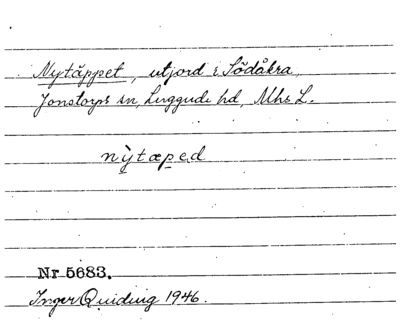 Nytäppet, utjord i Södåkra,
Jonstorps sn, Luggude hd, Mhs L.
nỳtæped
Nr 5683.
Inger Quiding 1946.